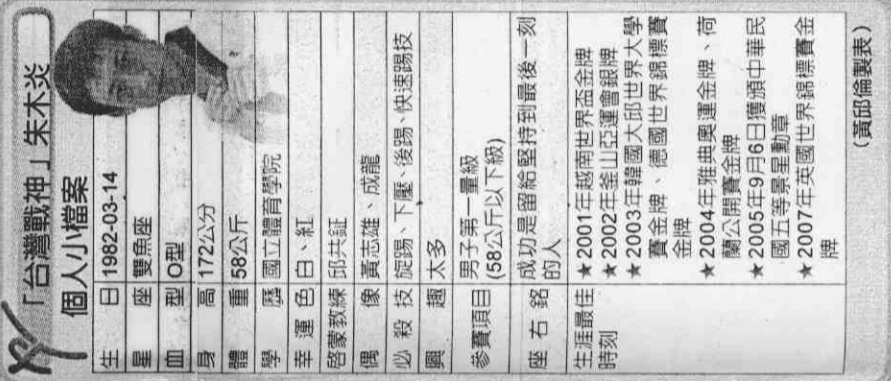 「台灣戰神」朱木炎
個人小檔案
生日 1982-03-14
星座 雙魚座
血型 O型
身高 172公分
體重 58公斤
學歷 國立體育學院
幸運色 白、紅
啓蒙教練 邱共鉦
偶像 黃志雄、成龍
必殺技 旋踢、下壓、後踢、快速踢技
興趣 太多
參賽項目 男子第一量級
(58公斤以下級)
座右銘 成功是留給堅持到最後一刻
的人
生涯最佳 ★2001年越南世界盃金牌
時刻 ★2002年釜山亞運會銀牌
★2003年韓國大邱世界大學
賽金牌、德國世界錦標賽
金牌
★2004年雅典奧運金牌、荷
蘭公開賽金牌
★2005年9月6日獲頒中華民
國五等景星勳章
★2007年英國世界錦標賽金
牌
(黃邱倫製表)